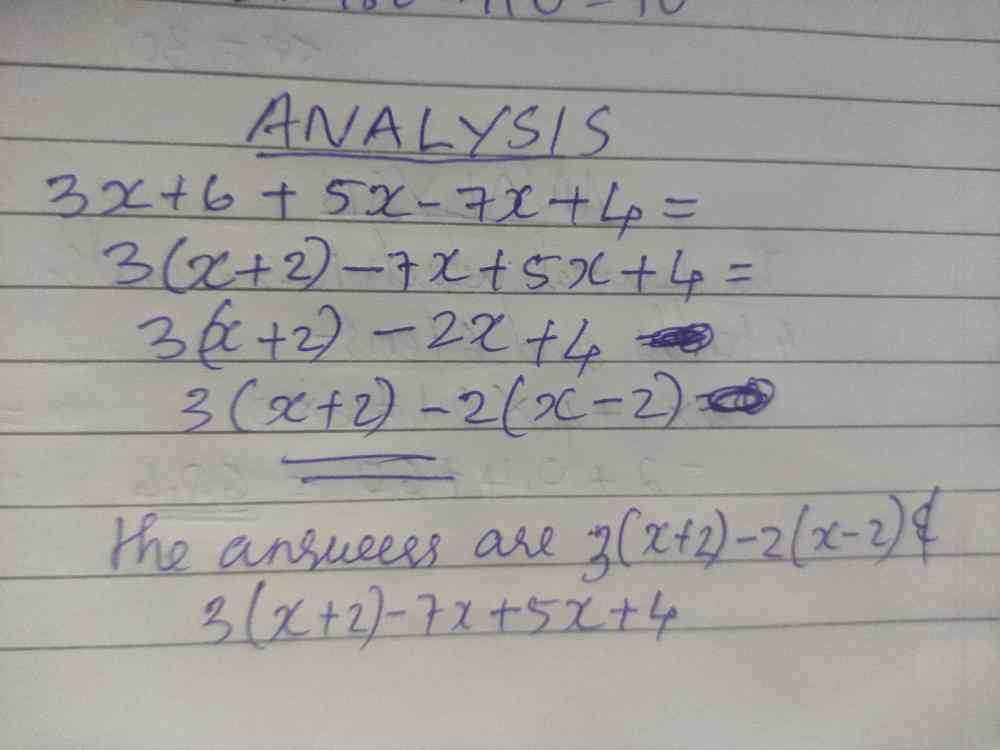 ANALYSIS
3x+6 + 5x-7x+4=
3(x+2)-7x+5x+4=
3(x+2) - 2x+4
3(x+2) -2(x-2)
the answers are 3(x+2)-2(x-2) &
3(x+2)-7x+5x+4